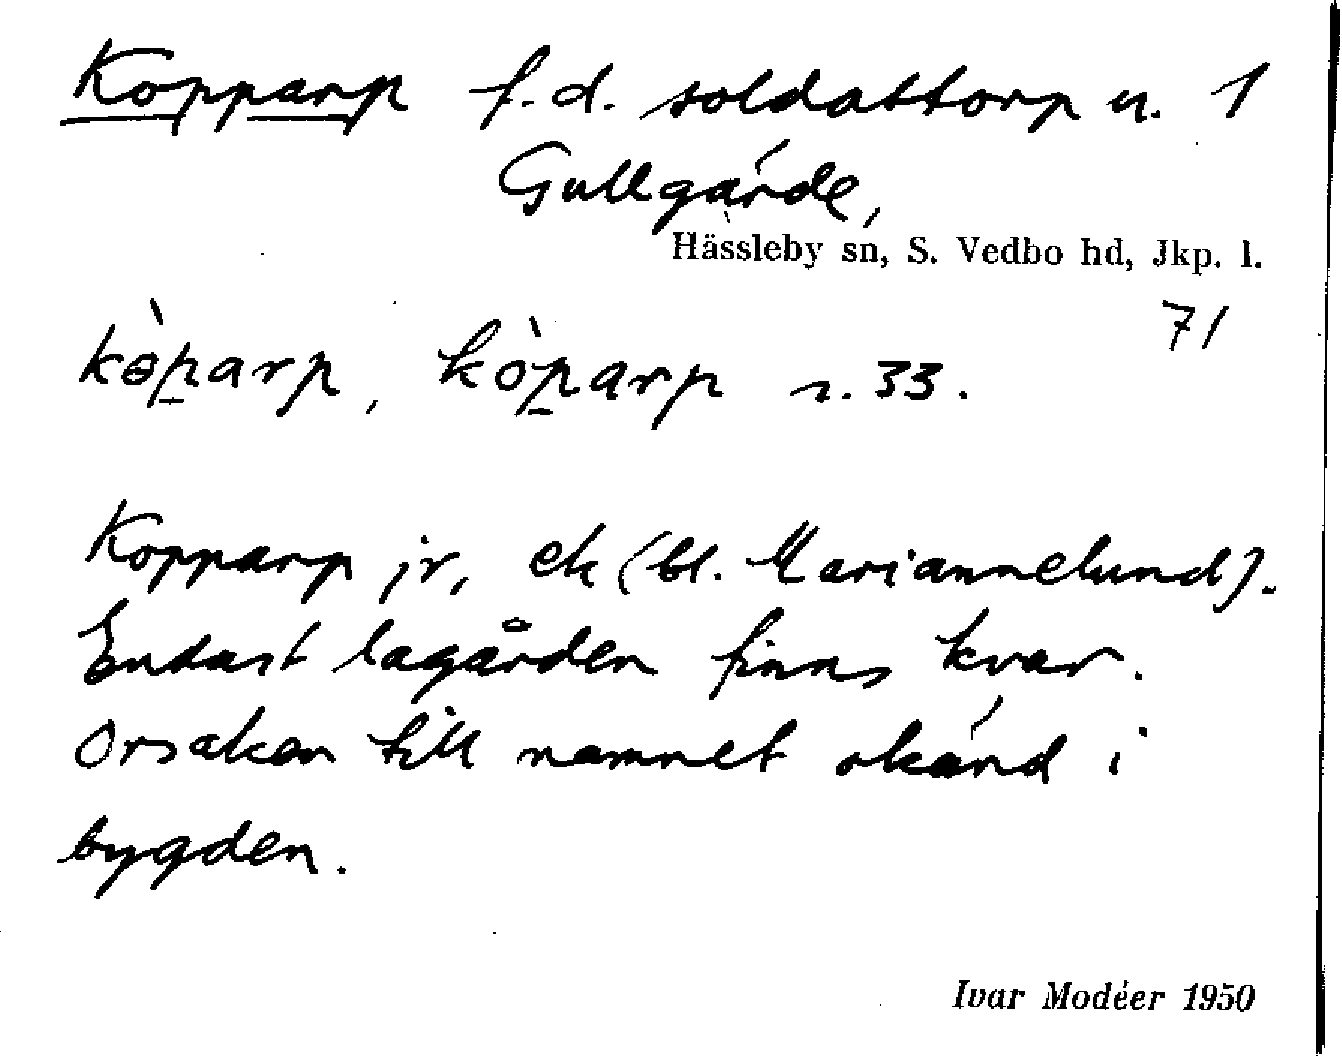 Kopparp f.d. soldattorp u. 1
Gullgärde,
Hässleby sn, S. Vedbo hd, Jkp. l.
71
kɵ̀p̲arp, kòp̲arp r. 33.
Kopparp jr, ek (bl. Mariannelund).
Endast lagården finns kvar.
Orsaken till namnet okänd i
bygden.
Ivar Modéer 1950